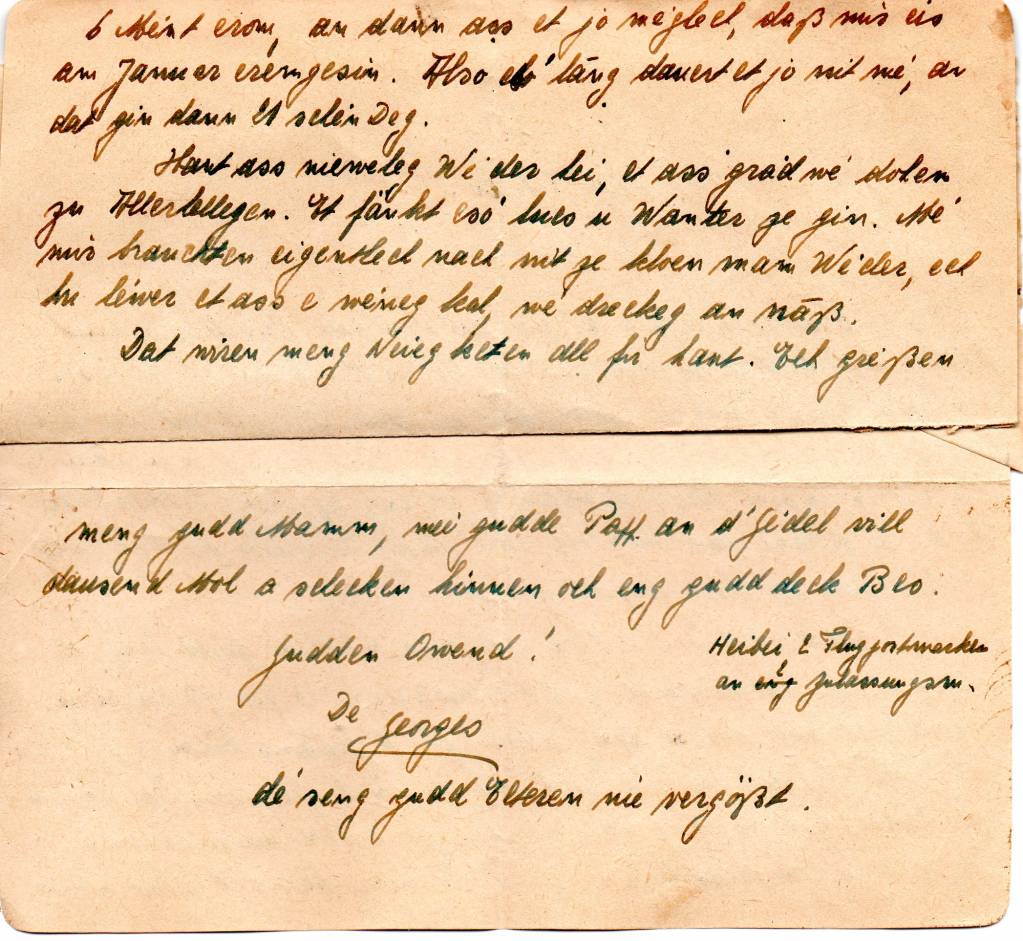 6 Méint erom, an dann ass et jo méglech, daß mir eis
am Januar erëmgesin. Also eso' lang dauert et jo nit mé, an
dat gin dann 21 schéin Deg.
Haut ass nieweleg Wé der hei, et ass grad wé doheem
zu Allerhellegen. Et fänkt eso' lues u Wanter ze gin. Mé
mir brauchten eigentlech nach nit ze kloen mam Wéder, ech
hu léiwer et ass e wéineg kal, wé dreckeg an näß.
Dat wiren meng Neiegketen all fir haut. Ech gréißen
meng gudd Mamm, méi gudde Papp an d'Gidel vill
dausend Mol a schecken hinnen och eng gudd deck Bes.
Gudden Owend!
Heibei 2 Flugpostmarken
an eng Zulassungsm.
De Georges
dé seng gudd Elteren nie vergößt.